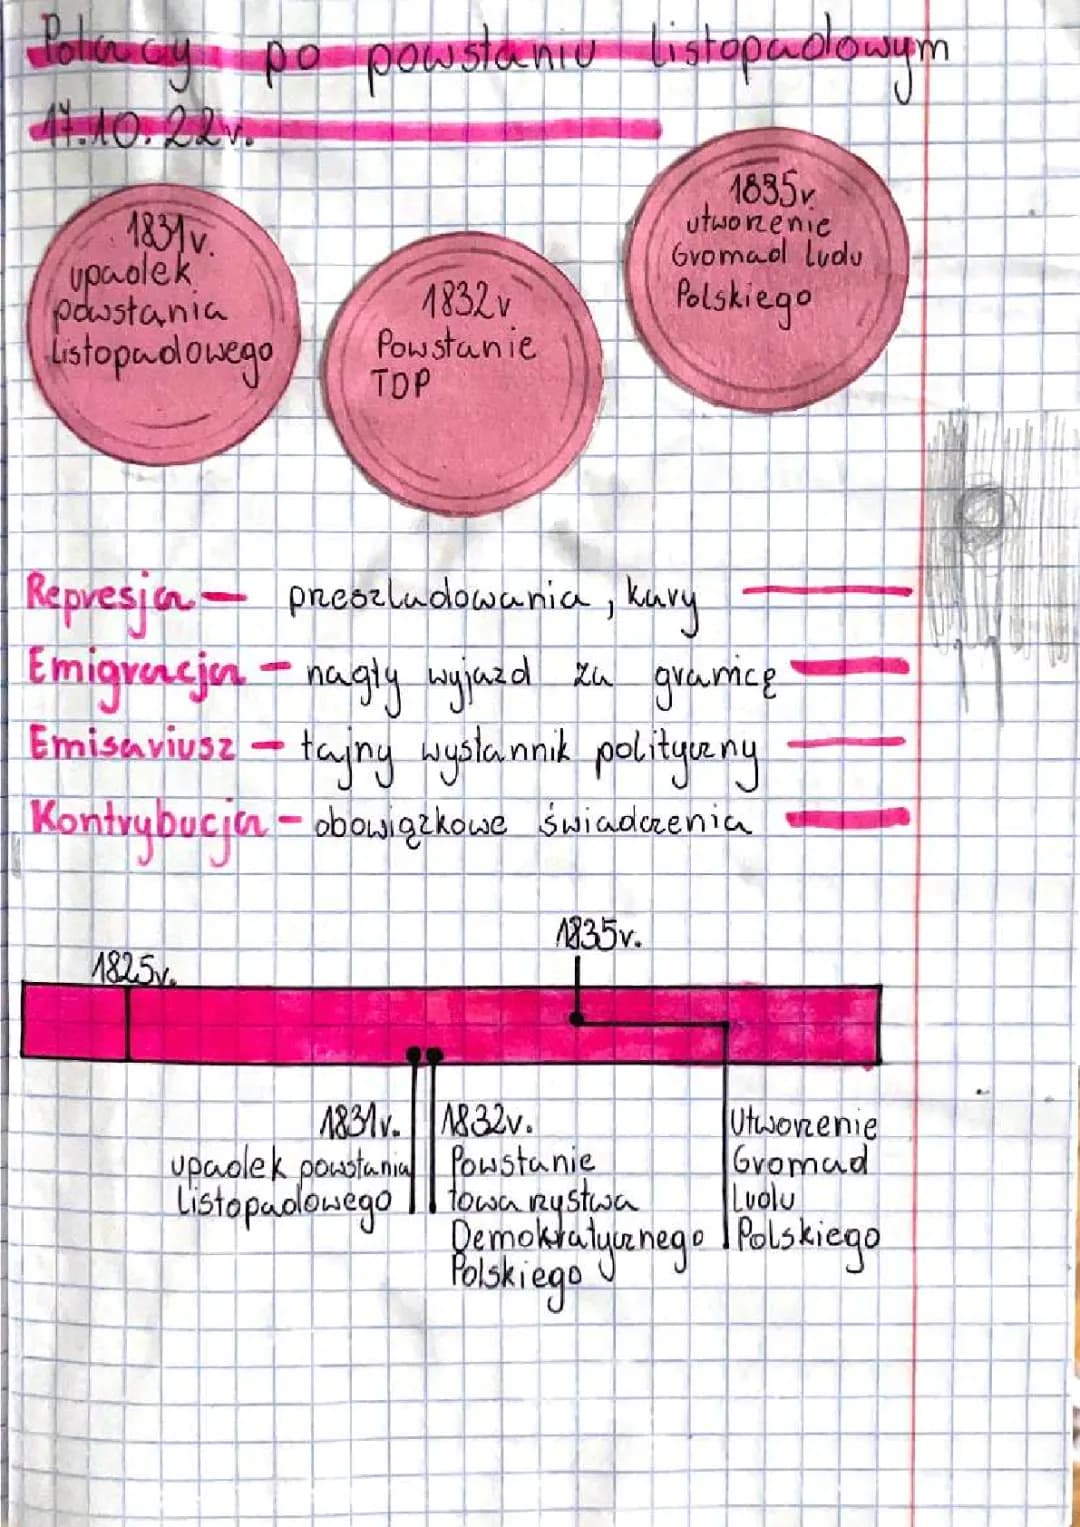 Polacy po powstaniu listopadowym
17.10.22r.
1831r.
upadek
powstania
Listopadowego
1832r
Powstanie
TDP
1835r.
utworzenie
Gromad ludu
Polskiego
Represja – przeszladowania, kary
Emigracja – nagły wyjazd za granicę
Emisariusz – tajny wysłannik polityczny
Kontrybucja – obowiązkowe świadczenia
1835r.
1825r.
1831r.
upadek powstania
Listopadowego
1832r.
Powstanie
towarzystwa
Demokratycznego
Polskiego
Utworzenie
Gromad
Ludu
Polskiego